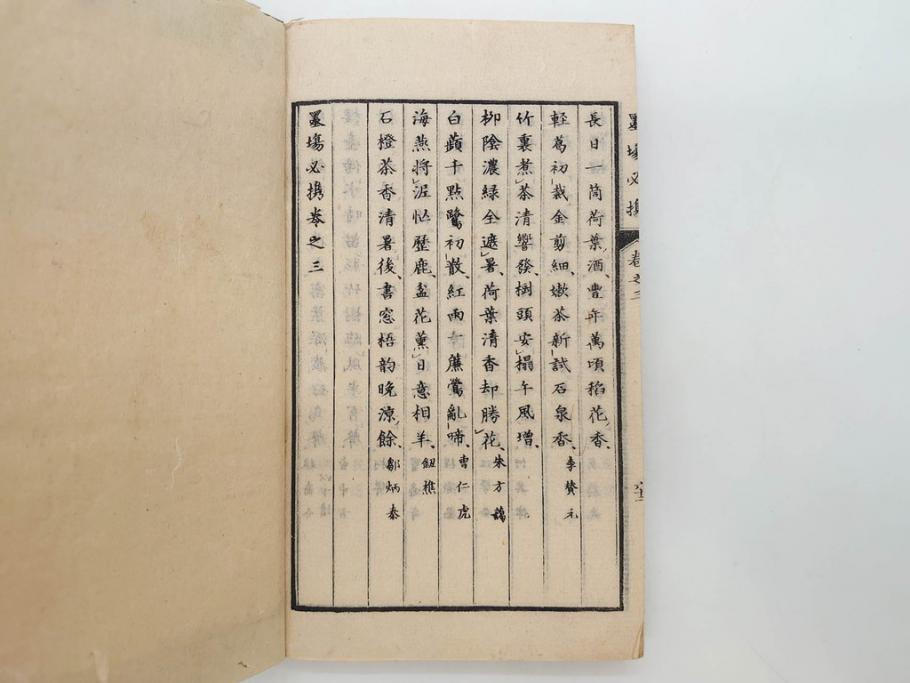 長日一筒荷葉酒、豐年萬頃稻花香、
輕葛初裁金剪細、嫰茶新試石泉香 李賛元
竹裏煮茶清響發、樹頭安榻午風增、
柳陰濃綠全遮暑、荷葉清香却勝花、 朱方藹
白蘋千點鷺初散、紅雨一簾鶯亂啼、 曹仁虎
海燕將泥怯歷鹿、盆花薰日意相羊、 鈕樵
石橙茶香清暑後、書窓梧韵晚涼餘、 鄒炳泰
墨塲必携卷之三
墨塲必携 卷之三